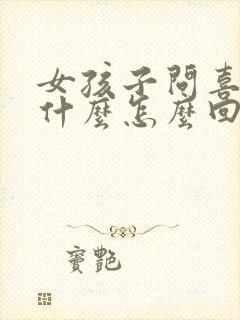 女孩子問喜
什麼怎麼回
寶艷